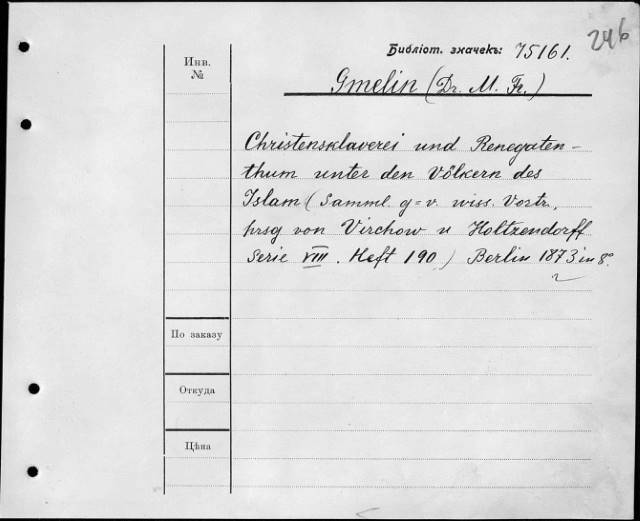 246
Библіот. значекъ: 75161.
Инв.
№
Gmelin (Dr. M. Fr.)
Christensklaverei und Renegaten-
thum unter den Völkern des
Islam (Samml. g=v. wiss. Vortr.
hrsg von Virchow u Holtzendorff
Serie VIII. Heft 190) Berlin 1873 in 8°.
По заказу
Откуда
Цѣна